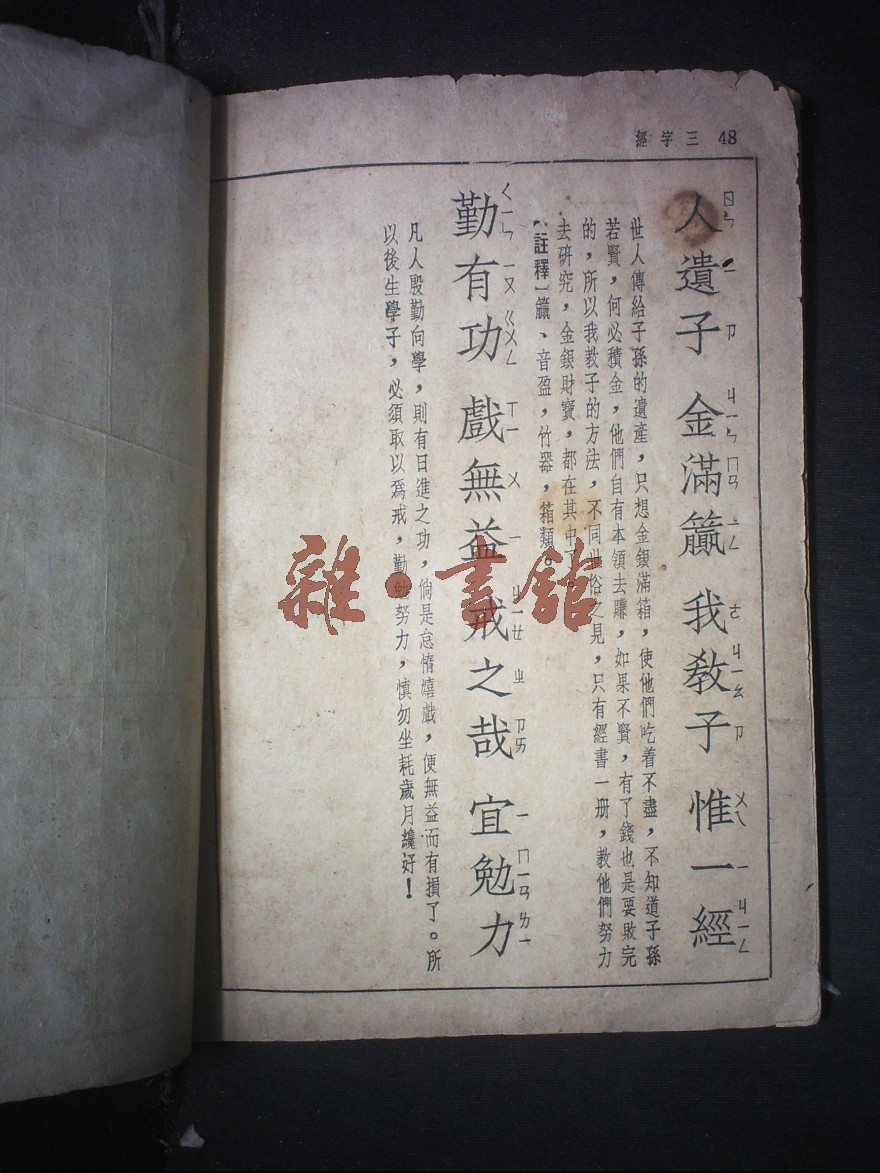 48 三字經
人遺子 金滿籯 我教子 惟一經
世人傳給子孫的遺產，只想金銀滿箱，使他們吃着不盡，不知道子孫
若賢，何必積金，他們自有本領去賺，如果不賢，有了錢也是要敗完
的，所以我教子的方法，不同世俗之見，只有經書一册，教他們努力
去研究，金銀財寶，都在其中了。
〔註釋〕籯、音盈，竹器，箱類。
勤有功 戲無益 戒之哉 宜勉力
凡人殷勤向學，則有日進之功，倘是怠惰嬉戲，便無益而有損了。所
以後生學子，必須取以爲戒，勤勉努力，慎勿坐耗歲月纔好！
雜·書館